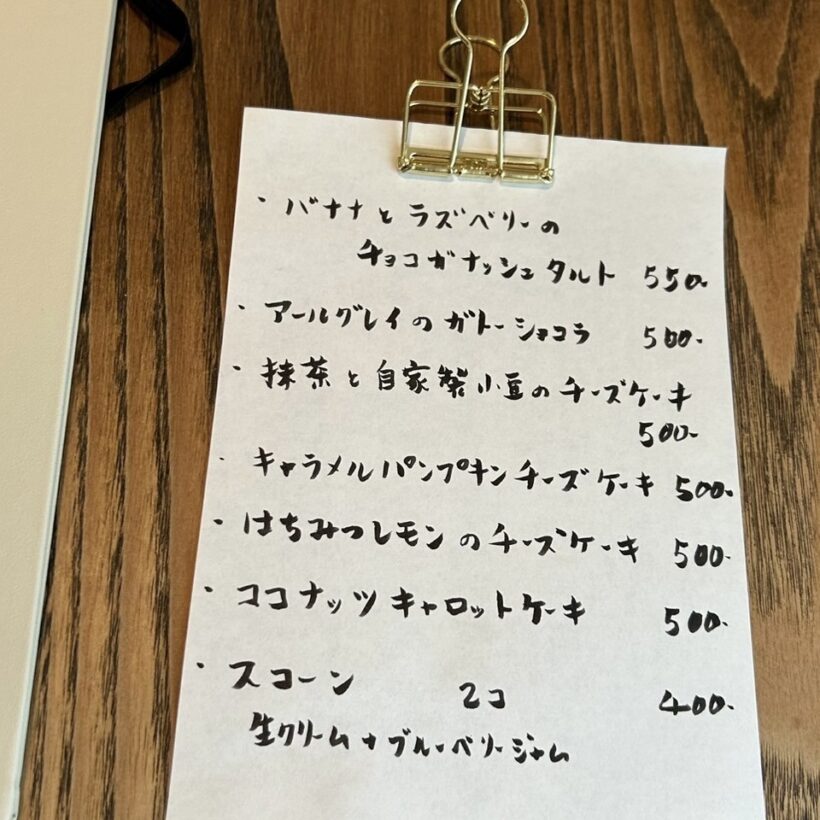 ・バナナとラズベリーの
チョコガナッシュタルト 550-
・アールグレイのガトーショコラ 500-
・抹茶と自家製小豆のチーズケーキ
500-
・キャラメルパンプキンチーズケーキ 500-
・はちみつレモンのチーズケーキ 500-
・ココナッツキャロットケーキ 500-
・スコーン 2コ 400-
生クリーム+ブルーベリージャム